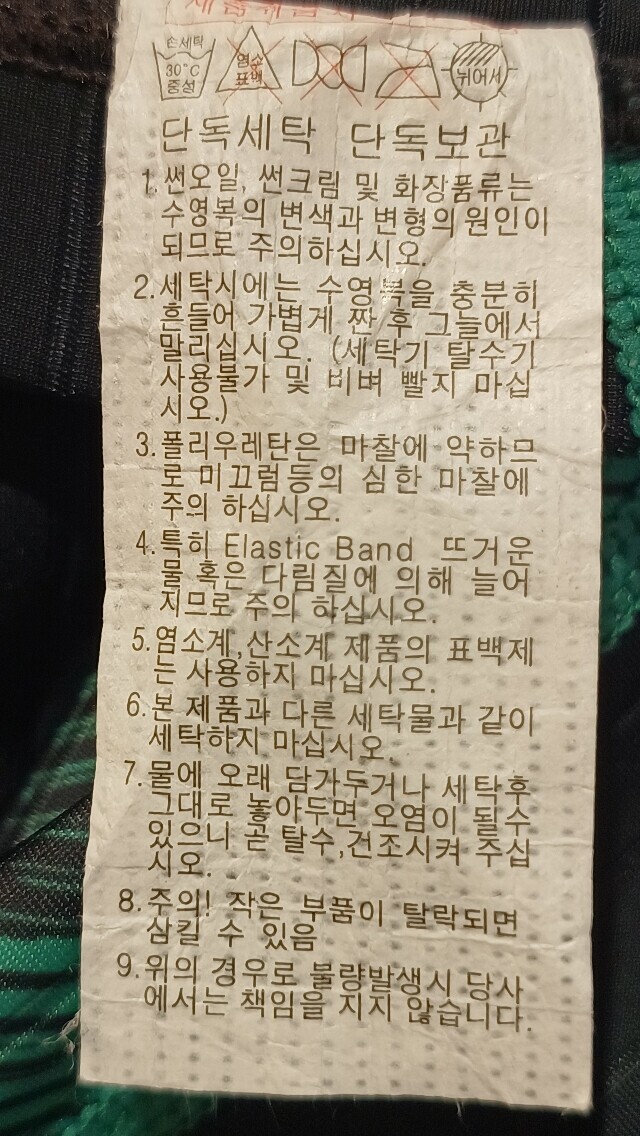 손세탁
30°C
중성
염소
표백
뉘어서
단독세탁 단독보관
1. 썬오일, 썬크림 및 화장품류는
수영복의 변색과 변형의원인이
되므로 주의하십시오.
2. 세탁시에는 수영복을 충분히
흔들어 가볍게 짠 후 그늘에서
말리십시오. (세탁기 탈수기
사용불가 및 비벼 빨지 마십
시오.)
3. 폴리우레탄은 마찰에 약하므
로 미끄럼등의 심한 마찰에
주의 하십시오.
4. 특히 Elastic Band 뜨거운
물 혹은 다림질에 의해 늘어
지므로 주의 하십시오.
5. 염소계,산소계 제품의 표백제
는 사용하지 마십시오.
6. 본 제품과 다른 세탁물과 같이
세탁하지 마십시오.
7. 물에 오래 담가두거나 세탁후
그대로 놓아두면 오염이 될수
있으니 곧 탈수,건조시켜 주십
시오.
8. 주의! 작은 부품이 탈락되면
삼킬 수 있음
9. 위의 경우로 불량발생시 당사
에서는 책임을 지지 않습니다.